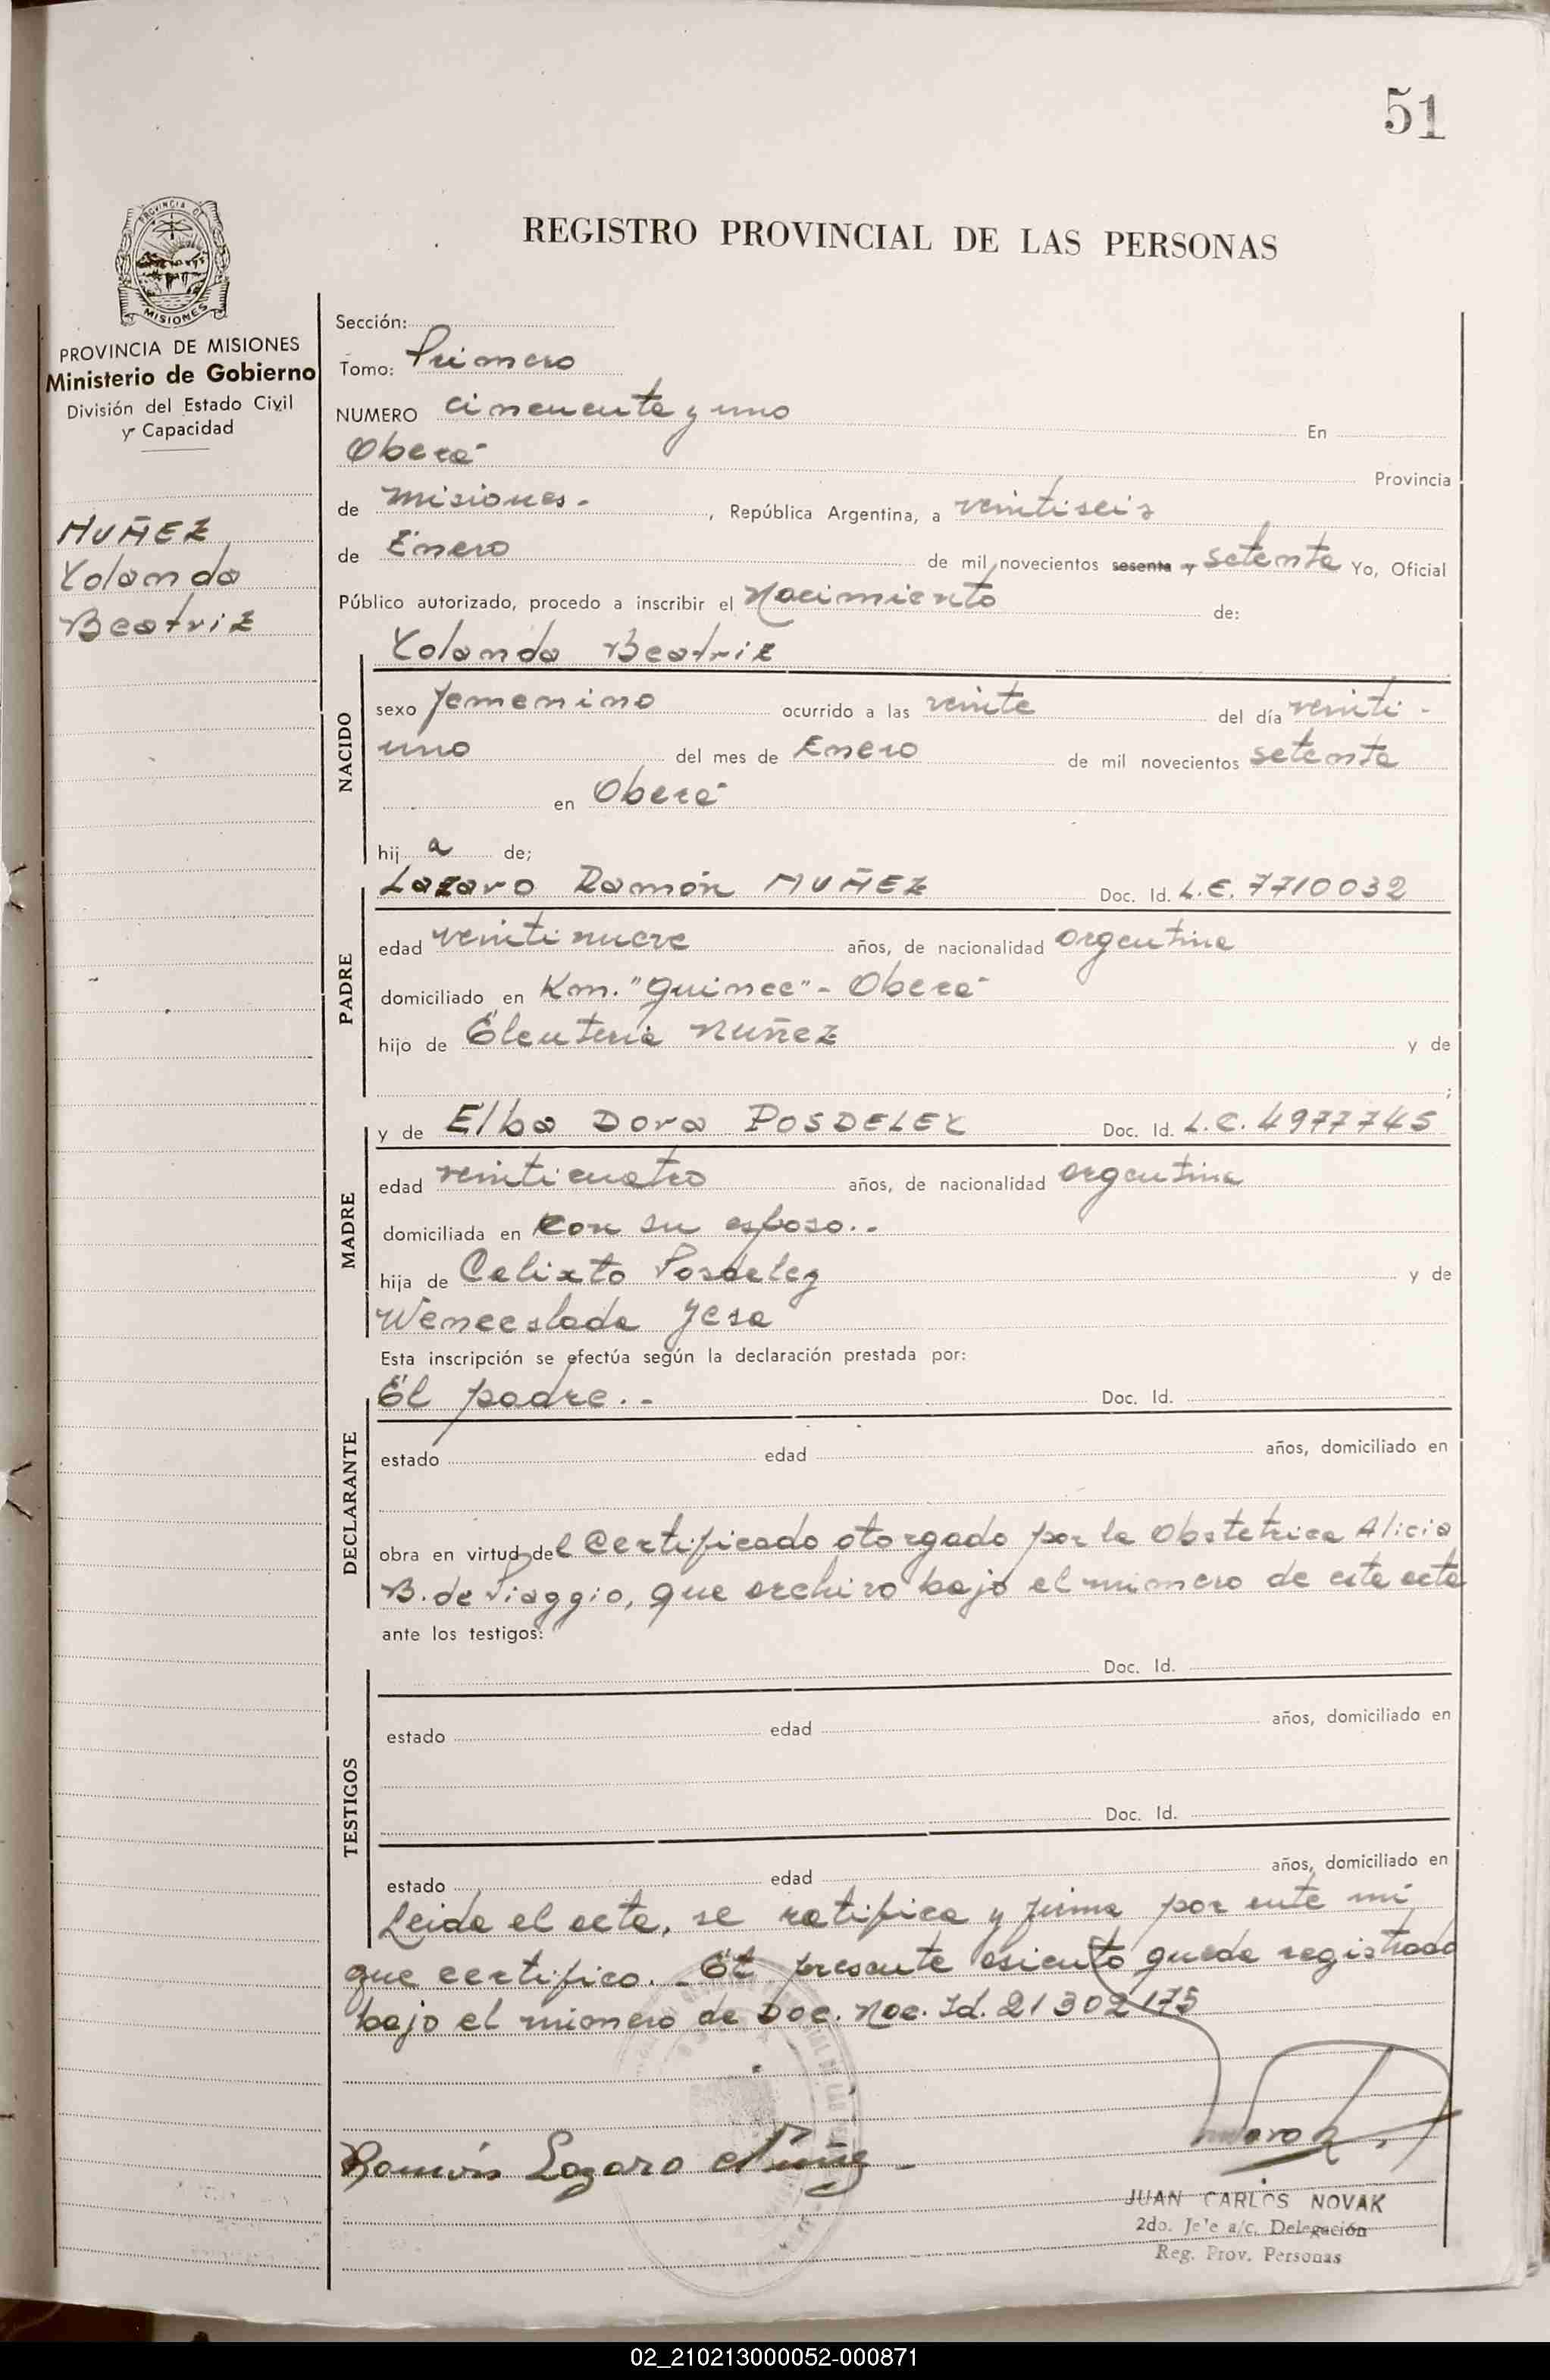 51
REGISTRO PROVINCIAL DE LAS PERSONAS
PROVINCIA DE MISIONES
Ministerio de Gobierno
División del Estado Civil
y Capacidad
NUÑEZ
Yolanda
Beatriz
Sección:
Tomo: Primero
NUMERO cincuenta y uno En
Oberá Provincia
de Misiones.- , República Argentina, a veintiseis
de Enero de mil novecientos sesenta y setenta Yo, Oficial
Público autorizado, procedo a inscribir el Nacimiento de:
Yolanda Beatriz
NACIDO
sexo femenino ocurrido a las veinte del día veinti-
uno del mes de Enero de mil novecientos setenta
en Oberá
hij a de;
PADRE
Lazaro Ramón NUÑEZ Doc. Id. L.E. 7710032
edad veintinueve años, de nacionalidad argentina
domiciliado en Km. "Quince"- Oberá
hijo de Eleuteria Nuñez y de
;
MADRE
y de Elba Dora POSDELEY Doc. Id. L.C. 4977745
edad veinticuatro años, de nacionalidad argentina
domiciliada en Con su esposo..-
hija de Calixto Posdeley y de
Wenceslada
Esta inscripción se efectúa según la declaración prestada por:
DECLARANTE
El padre..- Doc. Id.
estado edad años, domiciliado en
obra en virtud del Certificado otorgado por la Obstetrica Alicia
B. de Viaggio, que archivo bajo el número de este acta
ante los testigos:
TESTIGOS
Doc. Id.
estado edad años, domiciliado en
Doc. Id.
estado edad años, domiciliado en
Leida el acta, se ratifica y firma por ante mi
que certifico.- El presente asiento queda registrado
bajo el número de Doc. Nac. Id. 21302175
Ramón Lazaro Núñez -
Novak
JUAN CARLOS NOVAK
2do. Jefe a/c. Delegación
Reg. Prov. Personas
02_210213000052-000871